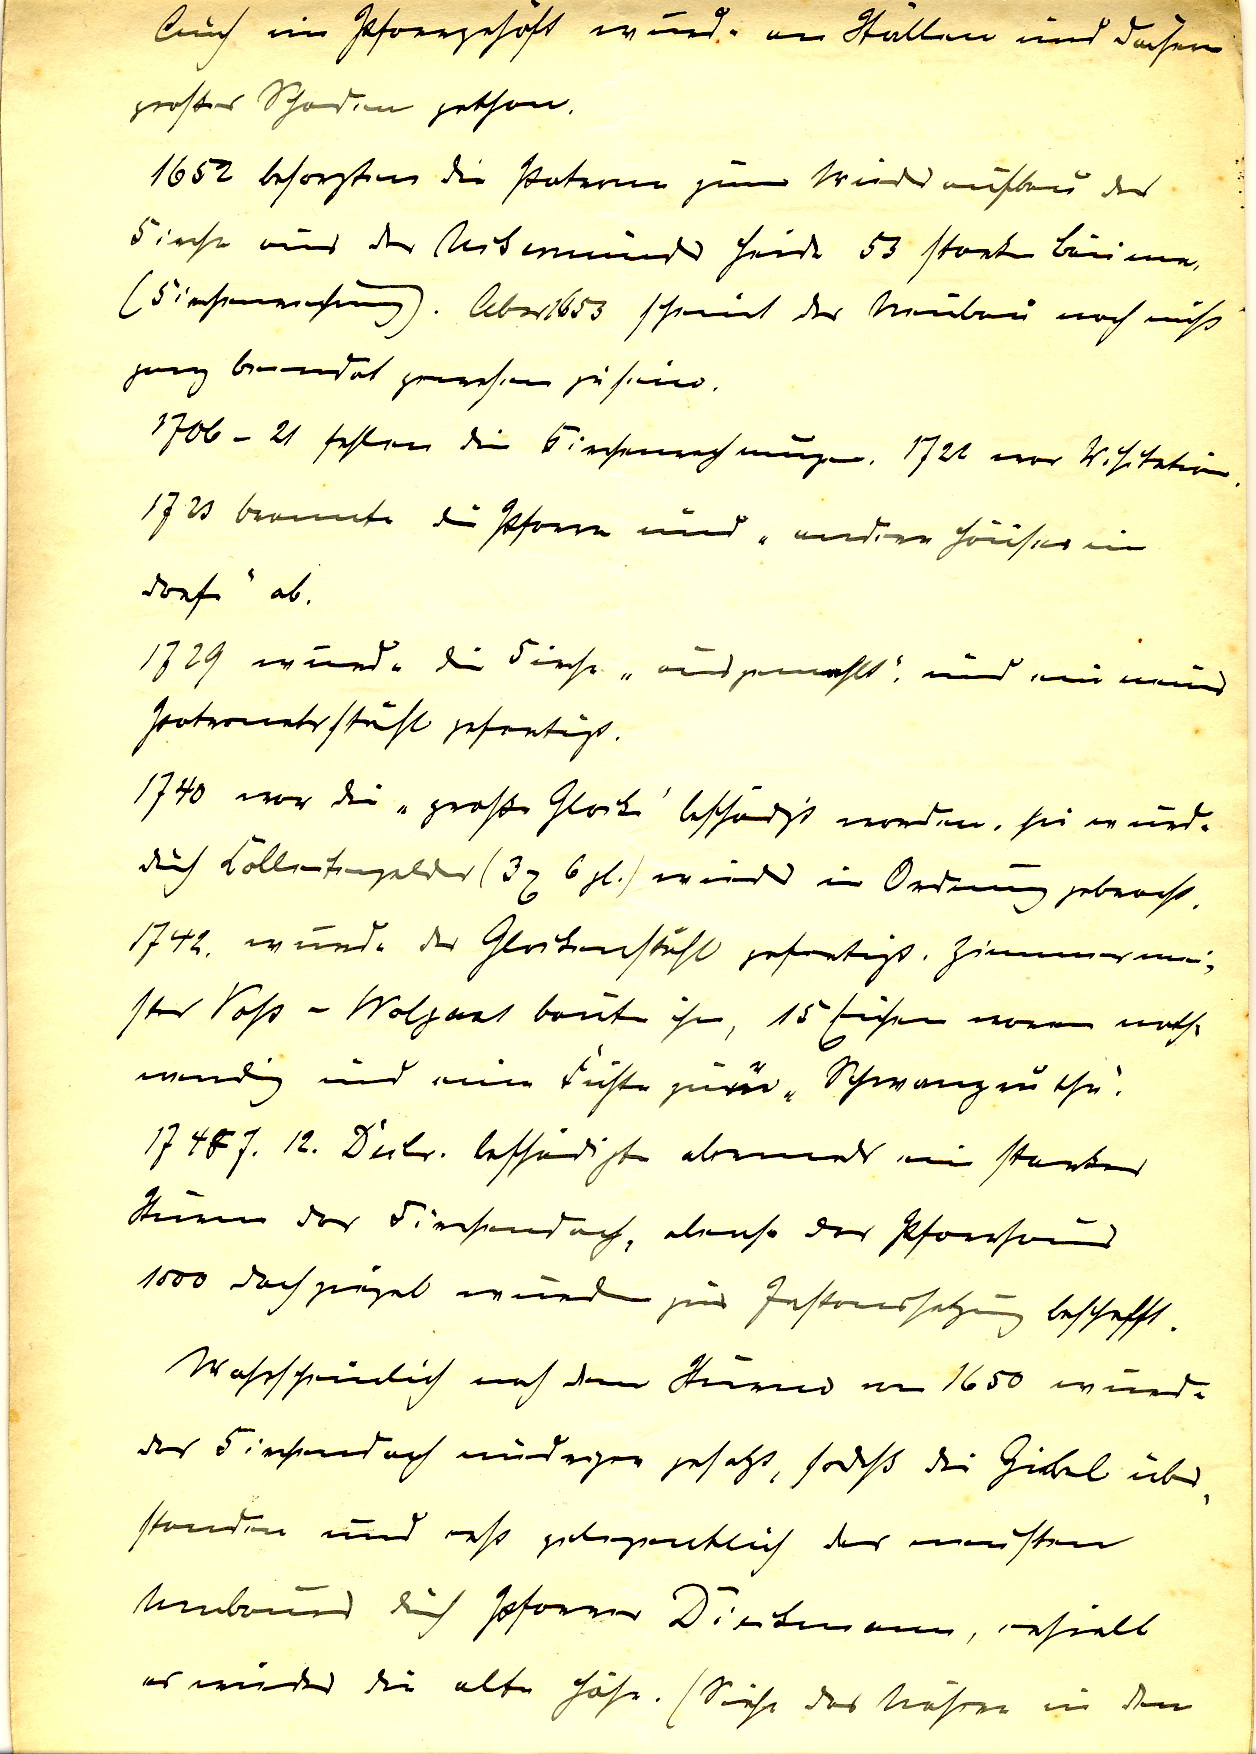 Auch im Pfarrgehöft wurde an Ställen und Dächern
großer Schaden gethan.
1652 besorgten die Patrone zum Wiederaufbau der
Kirche aus der Uckermünder Heide 53 starke Bäume.
(Kirchenrechnung). Aber 1653 scheint der Neubau noch nicht
ganz beendet gewesen zu sein.
1706 – 21 fehlen die Kirchenrechnungen. 1722 war Visitation.
1723 brannte die Pfarre und „andere Häuser im
Dorfe" ab.
1729 wurde die Kirche „ausgemahlt". und ein neues
Patronatsstuhl gefertigt.
1740 war die „große Glocke" beschädigt worden. sie wurde
durch Kollektengelder (3 6 gl.) wieder in Ordnung gebracht.
1742. wurde der Glockenstuhl gefertigt. Zimmermei-
ster Voß – Wolgast baute ihn, 15 Eichen waren noth-
wendig und eine Fichte zur „Schwangruthe".
1747. 12. Decbr. beschädigte abermals ein starker
Sturm das Kirchendach, ebenso das Pfarrhaus
1000 Dachziegel wurden zur Instandsetzung beschafft.
Wahrscheinlich nach dem Sturme von 1650 wurde
das Kirchendach niedriger gesetzt, sodaß die Giebel über-
standen und erst gelegentlich des neusten
Umbaues durch Pfarrer Dieckmann, erhielt
es wieder die alte Höhe. (Siehe das Nähere in den